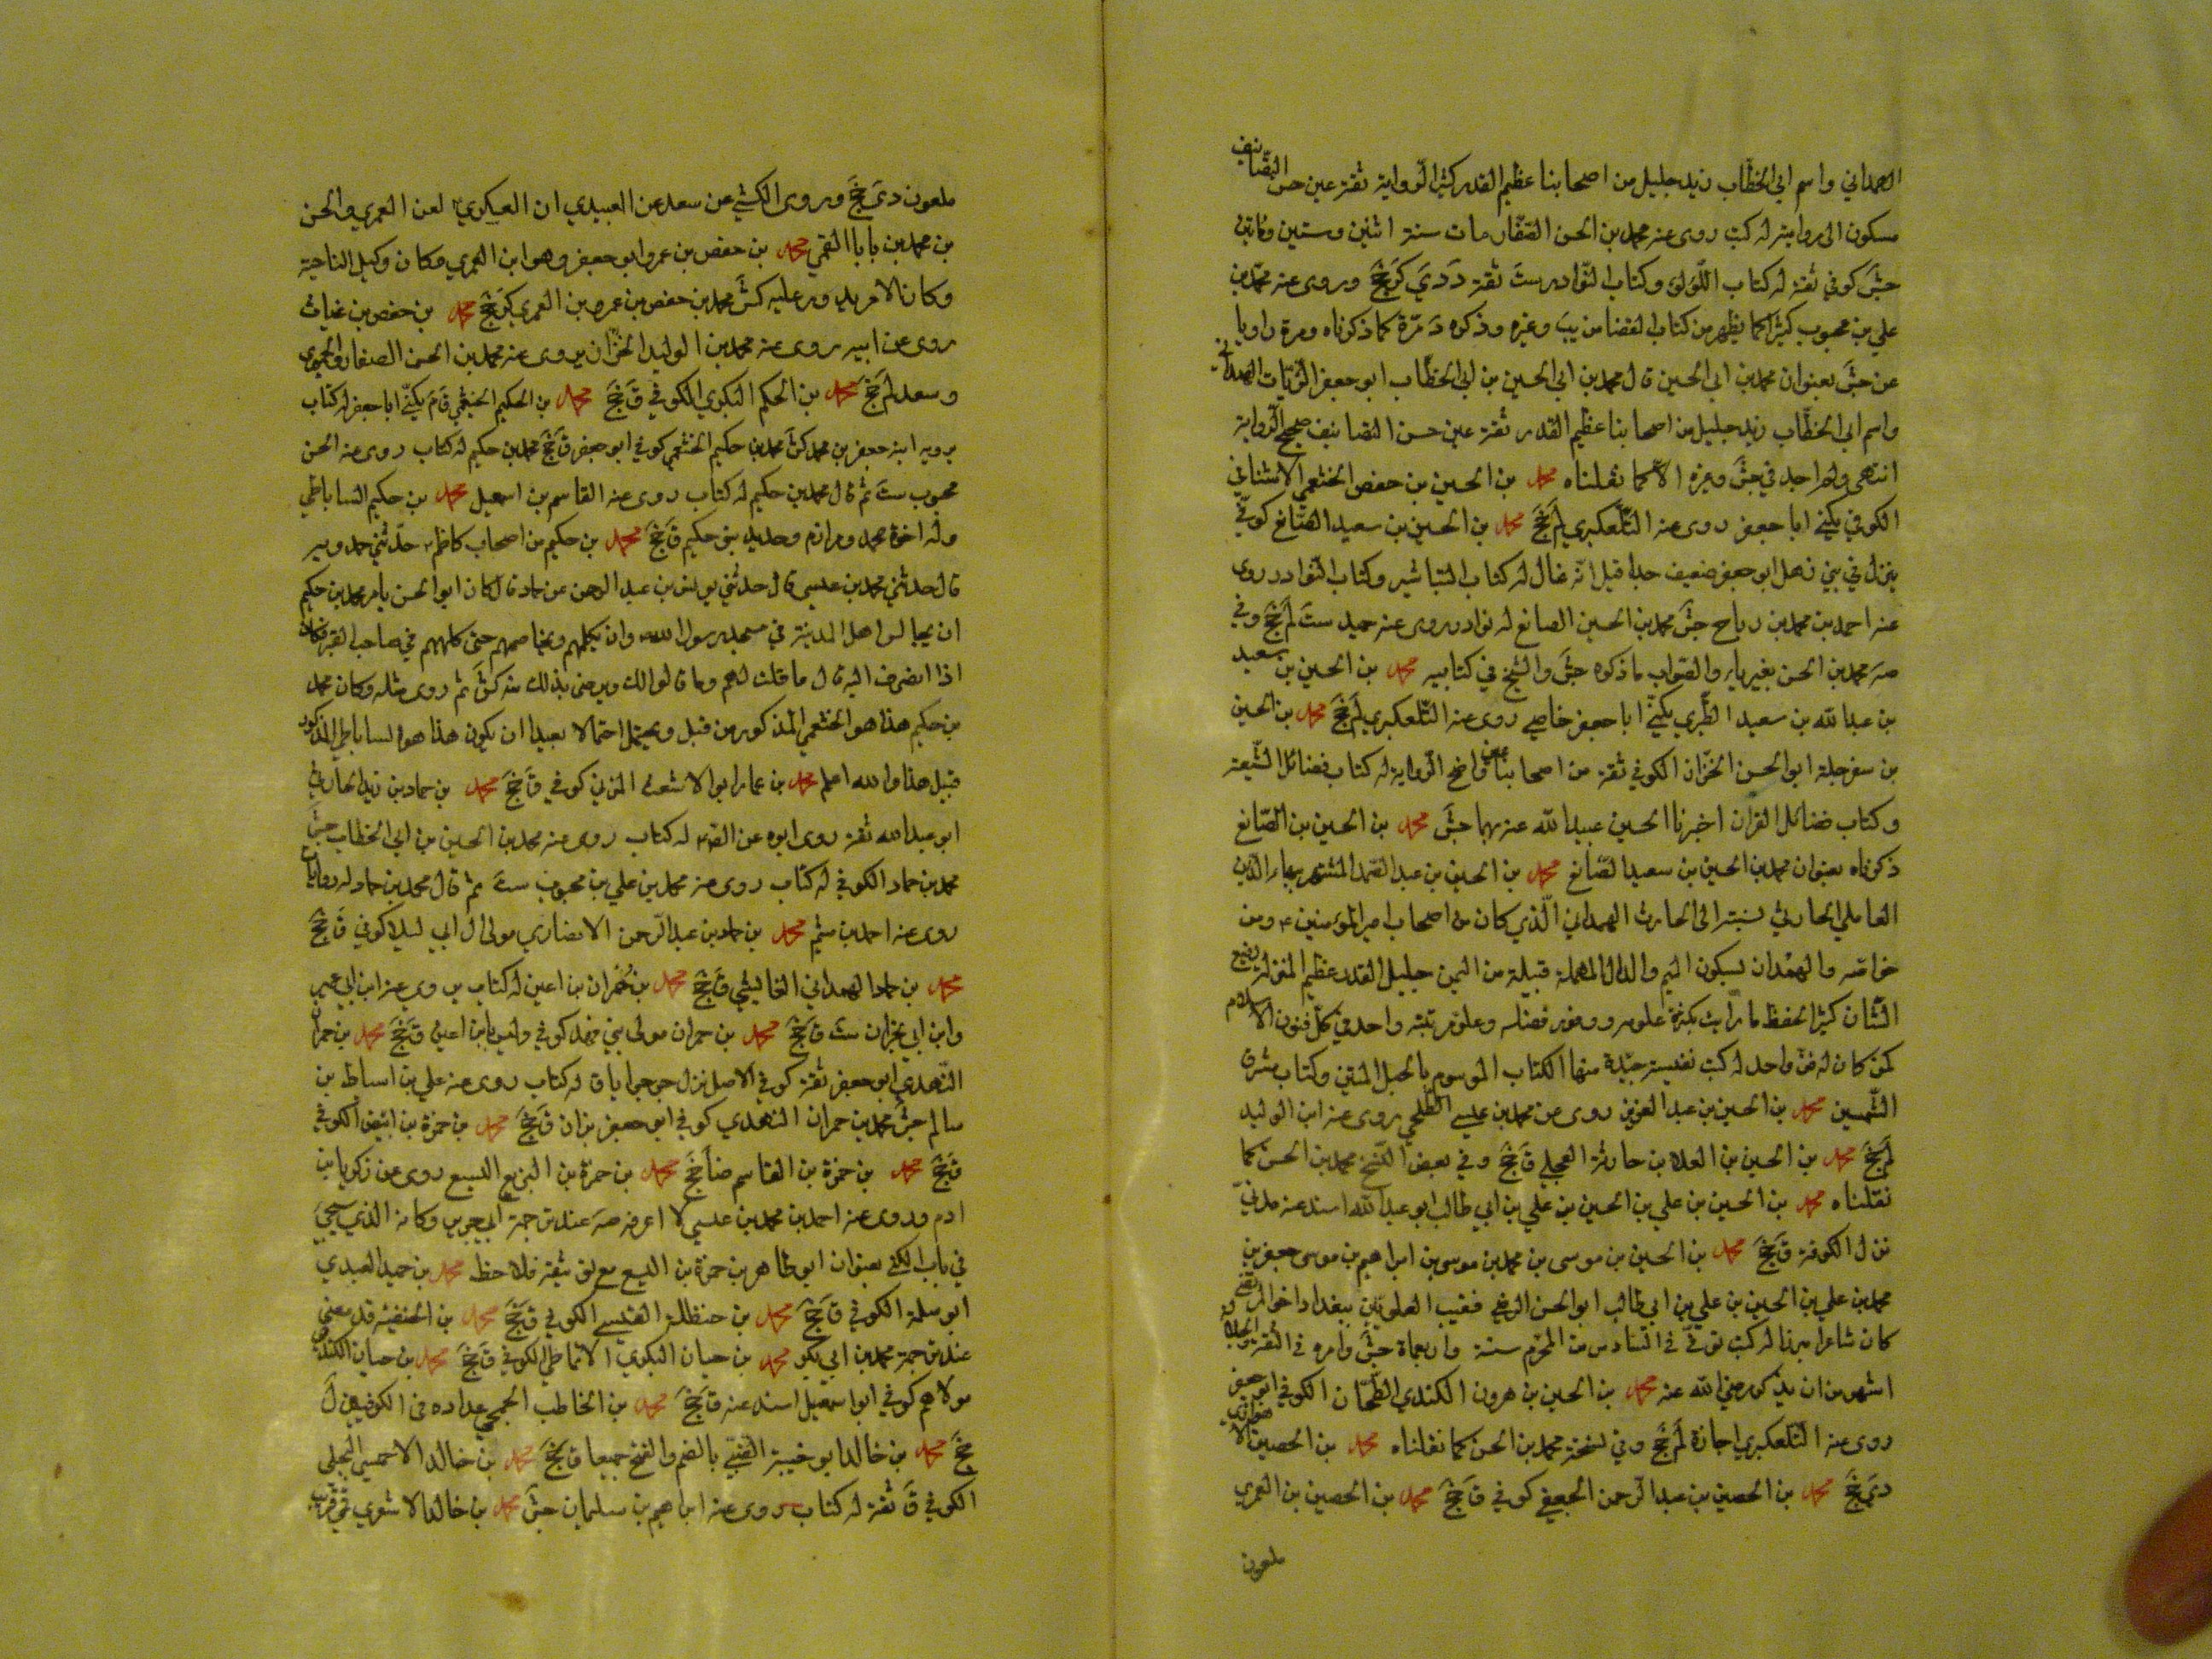 الهمداني واسم ابي الخطّاب زيد جليل من اصحابنا عظيم القدر كثير الرواية ثقة عين حسن التّصانيف
مسكون الى روايته له كتب روى عنه محمد بن الحسن الصّفّار مات سنة اثنين وستين ومأتين
جشَ كوفي ثقة له كتاب اللؤلؤ وكتاب النّوادر ستَ ثقة دَ ديَ كرَ جخَ وروى عنه محمّد بن
علي بن محبوب كثيرا كما يظهر من كتاب القضا من يبَ وغيره وذكره دَ مرّة كما ذكرناه ومرة راويا
عن جشَ بعنوان محمد بن ابي الحسين قال محمد بن ابي الحسين بن ابي الخطّاب ابو جعفر الزّيّات الهمداني
واسم ابي الخطّاب زيد جليل من اصحابنا عظيم القدر ثقة عين حسن التصانيف صحيح الرواية
انتهى ولم اجد في جشَ وغيره الا كما نقلناه محمد بن الحسين بن حفص الخثعمي الاشناني
الكوفي يكنى ابا جعفر روى عنه التّلّعكبري لم جخَ محمد بن الحسين بن سعيد الصّائغ كوفيّ
ينزل في بني ذهل ابو جعفر ضعيف جدا قيل انّه غال له كتاب التباشير وكتاب النّوادر روى
عنه احمد بن محمد بن رباح جشَ محمد بن الحسين الصائغ له نوادر روى عنه حميد ستَ لم جخَ وفي
صهَ محمد بن الحسن بغير ياء والصّواب ما ذكره جشَ والشيخ في كتابيه محمد بن الحسين بن سعيد
بن عبد الله بن سعيد الطّبري يكنّى ابا جعفر خاصي روى عنه التّلعكبري لم جخَ محمد بن الحسين
بن سفرجلة ابو الحسن الخزّاز الكوفي ثقة من اصحابنا عين واضح الرّواية له كتاب فضائل الشّيعة
وكتاب فضائل القران اخبرنا الحسين عبيد الله عنه بهما جشَ محمد بن الحسين بن الصّائغ
ذكرناه بعنوان محمد بن الحسين بن سعيد الصّائغ محمد بن الحسين بن عبد الصّمد المشتهر ببهاء الدّين
العاملي الحارثي نسبته الى الحارث الهمداني الّذي كان من اصحاب امير المؤمنين ع ومن
خواصّه والهمْدان بسكون الميم والدال المهملة قبيلة من اليمن جليل القدر عظيم المنزلة رفيع
الشّان كثير الحفظ ما رأيت بكثرة علومه ووفور فضله وعلوّ مرتبته واحد في كلّ فنون الاسلام
كمن كان له فن واحد له كتب نفيسة جيّدة منها الكتاب الموسوم بالحبل المتين وكتاب مشرق
الشّمسين محمد بن الحسين بن عبد العزيز روى عن محمد بن عيسى الطّلحي روى عنه ابن الوليد
لم جخَ محمد بن الحسين بن العلا بن حارثة العجلي قَ جخَ وفي بعض النّسخ محمد بن الحسن كما
نقلناه محمد بن الحسين بن علي بن الحسين بن علي بن ابي طالب ابو عبد الله اسند عنه مدنيّ
نزل الكوفة قَ جخَ محمد بن الحسين بن موسى بن محمد بن موسى بن ابراهيم بن موسى جعفر بن
محمد بن علي بن الحسين بن علي بن ابي طالب ابو الحسن الرضي نقيب العلويّين ببغداد اخو المرتضى
كان شاعرا مبرزا له كتب توفّي في السّادس من المحرّم سنة واربعمأة جشَ وامره في الثّقة والجلالة
اشهر من ان يذكر رضي الله عنه محمد بن الحسين بن هرون الكندي الطّحّان الكوفي ابو جعفر
روى عنه التّلعكبري اجازة لم جخَ وفي نسخة محمد بن الحسن كما نقلناه محمد بن الحصين الاهوازي
دي جخَ محمد بن الحصين بن عبد الرّحمن الجعفي كوفي قَ جخَ محمد بن الحصين بن العمري
ملعون
ملعون ديَ جخَ وروى الكشّي عن سعد عن العبيدي ان العسكري ع لعن العمري والحسن
بن محمد بن بابا القمي محمد بن حفص بن عمرو ابو جعفر وهو ابن العمري وكان وكيل الناحية
وكان الامر يدور عليه كشَ محمد بن حفص بن عمرو بن العمري كرَ جخَ محمد بن حفص بن غياث
روى عن ابيه روى عنه محمد بن الوليد الخزّاز روى عنه محمد بن الحسن الصفار والحميري
وسعد لم جخَ محمد بن الحكم البكري الكوفي قَ جخَ محمد بن الحكيم الخثعمي قَ مَ يكنّى ابا جعفر له كتاب
يرويه ابنه جعفر بن محمد كشَ محمد بن حكيم الخثعمي كوفي ابو جعفر قَ جخَ محمد بن حكيم له كتاب روى عنه الحسن
محبوب ستَ ثم قال محمد بن حكيم له كتاب روى عنه القاسم بن اسمعيل محمد بن حكيم الساباطي
وله اخوة محمد ومرازم وحديد بنو حكيم قَ جخَ محمد بن حكيم من اصحاب كاظم ع حدّثني حمدويه
قال حدثني محمد بن عيسى قال حدثني يونس بن عبد الرحمن عن حماد قال كان ابو الحسن يامر محمد بن حكيم
ان يجالس اهل المدينة في مسجد رسول الله ص وان يكلمهم ويخاصمهم حتى كلمهم في صاحب القبر فكان
اذا انصرف اليه قال ما قلت لهم وما قالوا لك ويرضى بذلك منه كشَ ثم روى مثله وكان محمد
بن حكيم هذا هو الخثعمي المذكور من قبل ويحتمل احتمالا بعيدا ان يكون هذا هو الساباطي المذكور
قبيل هذا والله اعلم محمد بن عمار ابو الاشعث المزني كوفي قَ جخَ محمد بن حماد بن زيد الحارثي
ابو عبد الله ثقة روى ابوه عن الصّ ع له كتاب روى عنه محمد بن الحسين بن ابي الخطاب جشَ
محمد بن حماد الكوفي له كتاب روى عنه محمد بن علي بن محبوب ستَ ثم قال محمد بن حماد له روايات
روى عنه احمد بن ميثم محمد بن حماد بن عبد الرّحمن الانصاري مولى ال ابي ليلا كوفي قَ جخَ
محمد بن حماد الهمداني الفايشي قَ جخَ محمد بن حُمران بن اعين له كتاب روى عنه ابن ابي عمير
وابن ابي نجران ستَ قَ جخَ محمد بن حمران مولى بني فهد كوفي وليس بابن اعين قَ جخَ محمد بن حمران
النّهدي ابو جعفر ثقة كوفي الاصل نزل جرجرايا قَ له كتاب روى عنه علي بن اسباط بن
سالم جشَ محمد بن حمران النهدي كوفي ابو جعفر بزاز قَ جخَ محمد بن حمزة بن ابيض الكوفي
قَ جخَ محمد بن حمزة بن القاسم ضا جخَ محمد بن حمزة بن اليسع روى عن زكريا بن
ادم وروى عنه احمد بن محمد بن عيسى لا اعرفه صهَ عند ترجمة ابي جرير وكانه الذي سيجيَ
في باب الكنى بعنوان ابو طاهر بن حمزة بن اليسع مع توثيقه فلاحظ محمد بن حميد العبدي
ابو سلمة الكوفي قَ جخَ محمد بن حنظلة القيسي الكوفي قَ جخَ محمد بن الحنفية قد مضى
عند ترجمة محمد بن ابي بكر محمد بن حيان البكري الانماطي الكوفي قَ جخَ محمد بن حيان الكندي
مولاهم كوفي ابو اسمعيل اسند عنه قَ جخَ محمد بن الخاطب الجمحي عداده في الكوفيين لَ
جخَ محمد بن خالد ابو خيبة الضبّي بالضم والفتح جميعا قَ جخَ محمد بن خالد الاحمسي البجلي
الكوفي قَ ثقة له كتاب روى عنه ابراهيم بن سليمان جشَ محمد بن خالد الاشعري قمي قريب